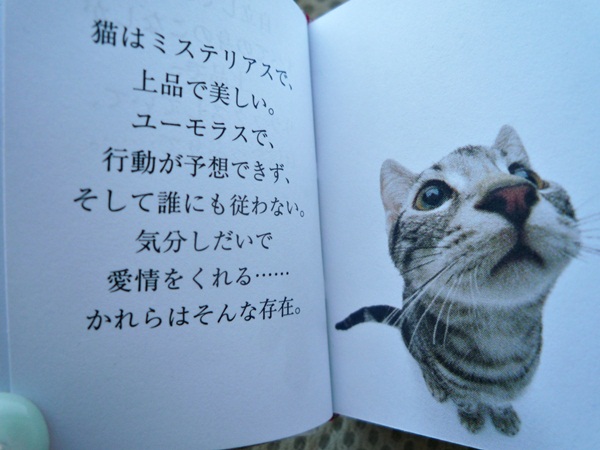 猫はミステリアスで、
上品で美しい。
ユーモラスで、
行動が予想できず、
そして誰にも従わない。
気分しだいで
愛情をくれる……
かれらはそんな存在。